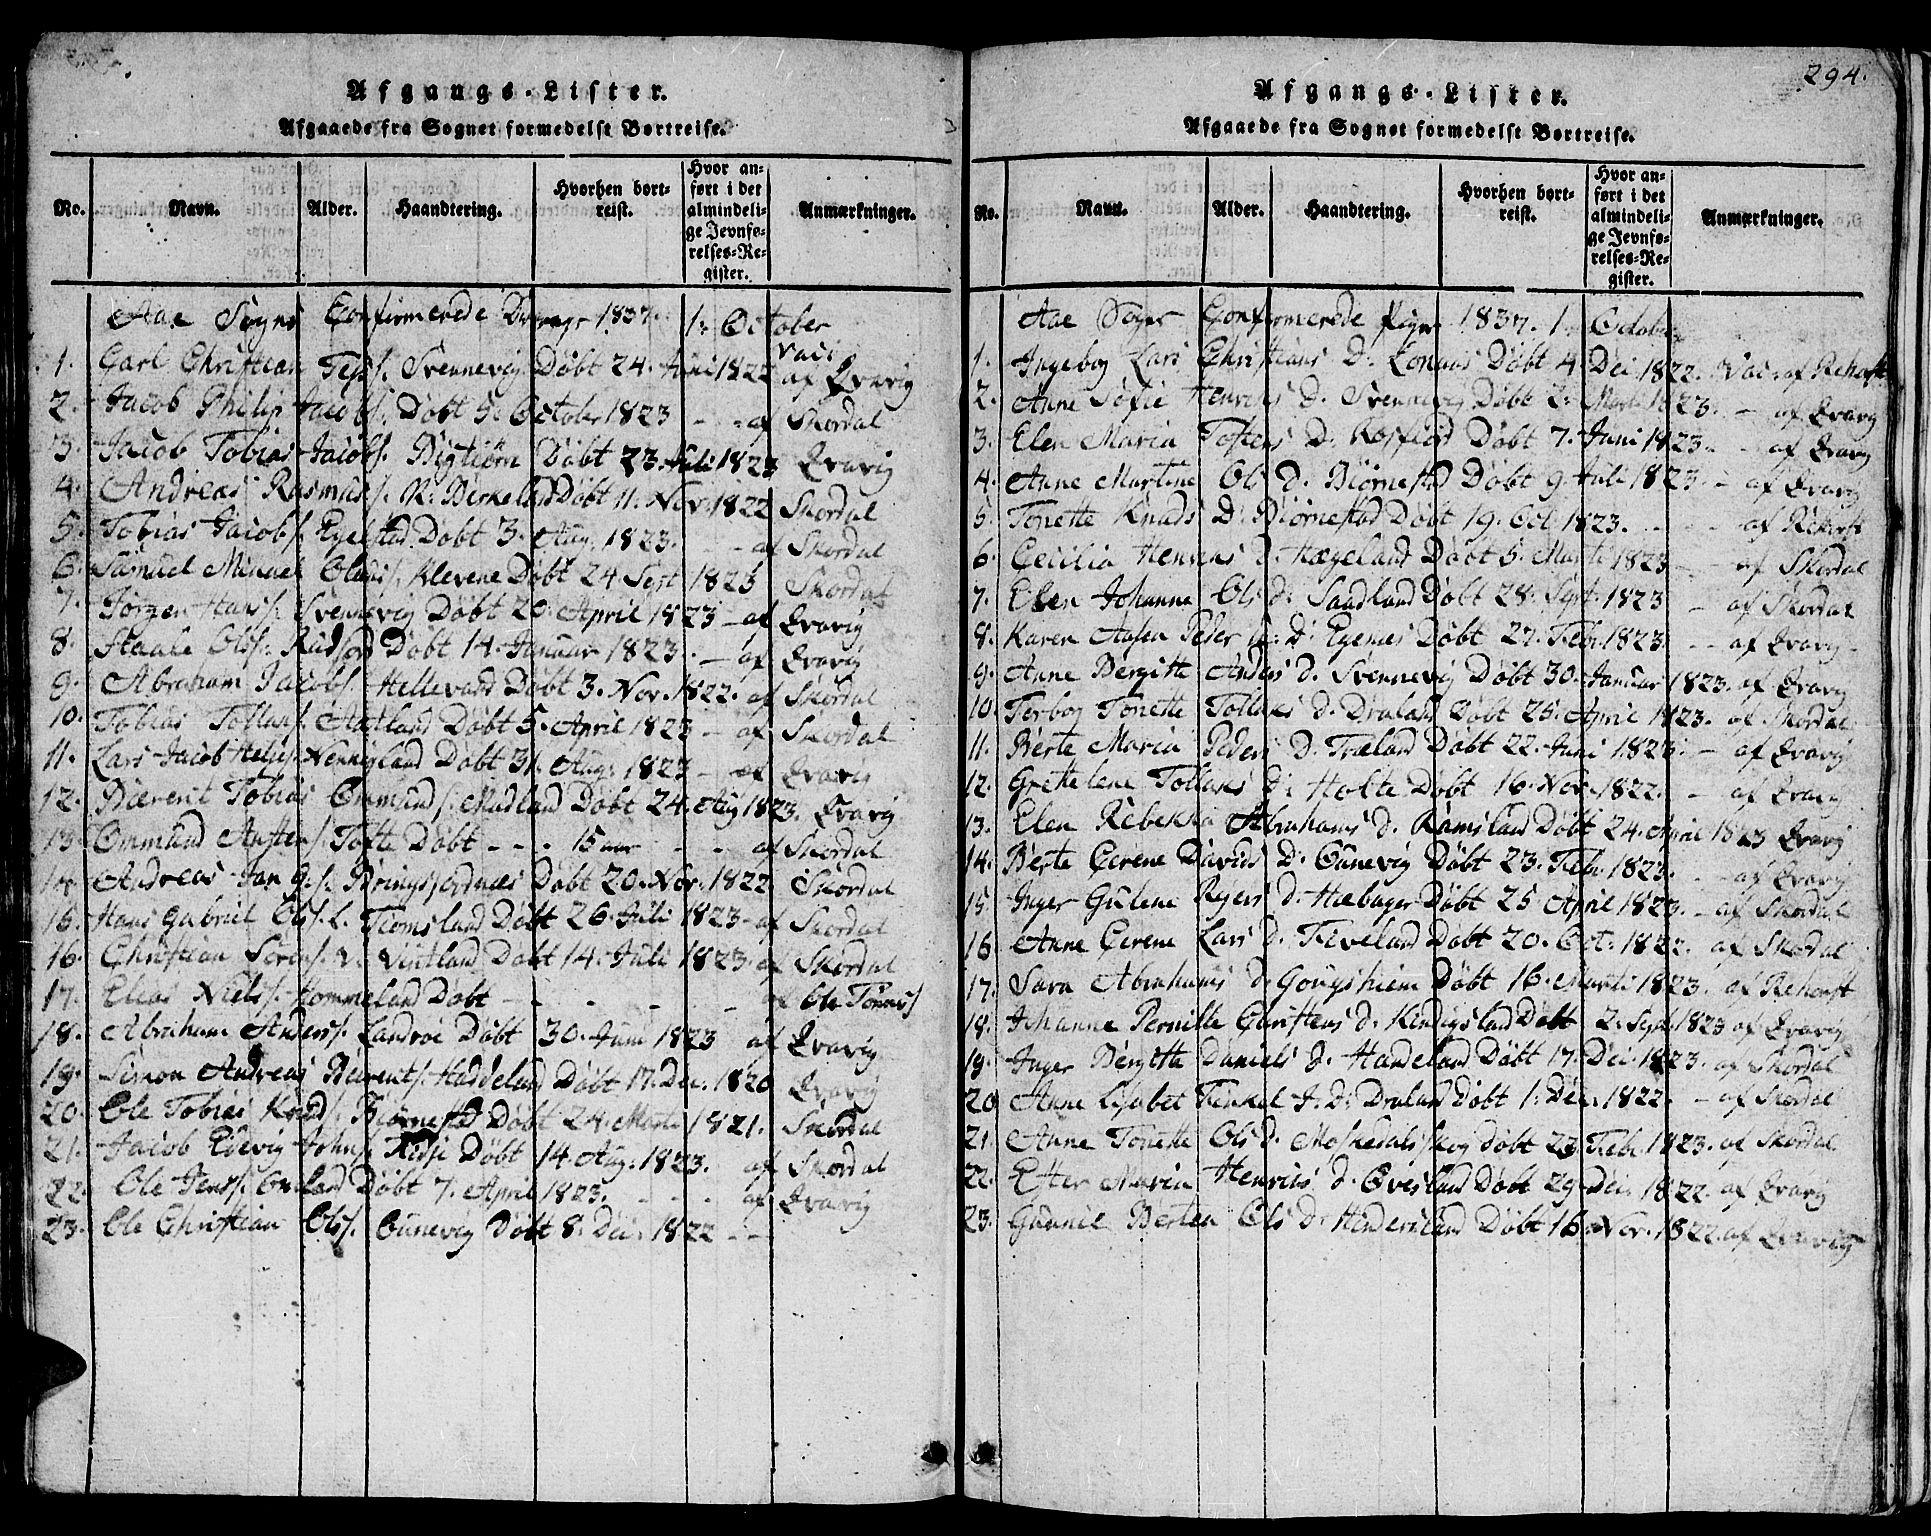 Afgangs-Lister.
Afgaaede fra Sognet formedelst Bortreise.
No.
Navn.
Alder.
Haandtering.
Hvorhen bort-
reist.
Hvor an-
ført i det
almindeli-
ge Jevnfø-
relses-Re-
gister.
Anmærkninger.
Aae Sogns Confirmerede Drenge 1837. 1: October
Vaci
1. Carl Christian Svennevig Døbt 24. Juni 1822 af Qvavig
2. Jacob Philip Jacobs. Døbt 5. October 1823 - - af Skordal
3. Jacob Tobias Jacobs. Bigtiørn Døbt 23. Juli 1823 Qvavig
4. Andreas Rasmuss. N. Birkeland Døbt 11. Nov. 1822 Skordal
5. Tobias Jacobs. Egelstad Døbt 3. Aug. 1823. - af Skordal
6. Samuel Olaus. Klevene Døbt 24 Sept 1823 Skordal
7. Jørgen Hans. Svennevig Døbt 20. April 1823 - af Qvavig
8. Staale Ols. Døbt 14. Januar 1823. - af Qvavig
9. Abraham Jacobs. Hellevard Døbt 3. Nov. 1822. af Skordal
10. Tobias Tollas. Døbt 5. April 1823 - af Skordal
11. Lars Jacob Nennigland Døbt 31. Aug: 1823 - af Qvavig
12. Bærent Tobias Ommund s. Midland Døbt 24. Aug 1823. Qvavig
13. Ommund Tofte Døbt - - - 15 aar - - af Skordal
14. Andreas Jan G.s. Bringsjordnæs Døbt 20. Nov. 1822 Skordal
15. Hans Gabriel Ols. L. Tiomsland Døbt 26. Juli 1823 - af Skordal
16. Christian Sørens. V. Vintland Døbt 14. Juli 1823. af Skordal
17. Elias Niels. Hommeland Døbt - - - - af Ole Tønnes
18. Abraham Anders. Landroe Døbt 30. Juni 1823 af Qvavig
19. Simon Andreas Bærents. Haddeland Døbt 17. Dec. 1820 Qvavig
20. Ole Tobias Knuds. Biørnestad Døbt 24. Marti 1821. Skordal
21. Jacob Edevig Johns. Døbt 14. Aug. 1823. af Skordal
22. Ole Jens. Døbt 7. April 1823. - - - af Qvavig
23. Ole Christian Ols. Ounevig Døbt 8. Dec. 1822 - -
294.
Afgangs-Lister.
Afgaaede fra Sognet formedelst Bortreise.
No.
Navn.
Alder.
Haandtering.
Hvorhen bort-
reist.
Hvor an-
ført i det
almindeli-
ge Jevnfø-
relses-Re-
gister.
Anmærkninger.
Aae Sogns Confirmerede Piger 1837. 1. October
1. Ingebog Lars Christians D. Døbt 4. Dec. 1822. Vac: af Rehorst
2. Anne Sofie Henriks D. Svennevig Døbt 2. Marti 1823. - af Qvavig
3. Elen Maria Tostens D. Rosfiord Døbt 7. Juni 1823. - af Qvavig
4. Anne Martine Ols D. Biørnestad Døbt 9. Juli 1823 - af Qvavig
5. Tonette Knuds D. Biørnestad Døbt 19. Oct 1823. - - af Rehorst
6. Cecilia Henriks D. Hægeland Døbt 5. Marti 1823 - af Skordal
7. Elen Johanna Ols D. Saadland Døbt 28. Sept. 1823 - af Skordal
8. Karen Aasen Peder D. Egenæs Døbt 27. Feb. 1823. - - af Qvavig
9. Anne Bergitte Anders D. Svennevig Døbt 30. Januar 1823. af Qvavig
10. Torbog Tonette Tollaks D. Draland Døbt 25. April 1823. af Skordal
11. Berte Maria Peders D. Træland Døbt 22. Juni 1823. - af Qvavig
12. Grette lene Tollaks D. Holte Døbt 16. Nov. 1822. - af Qvavig
13. Elen Rebekka Abrahams D. Ramsland Døbt 24. April 1823 Qvavig
14. Berte Serene Davids D. Ounevig Døbt 23. Feb. 1823. - af Qvavig
15. Inger Gulene Reiers D. Hæbager Døbt 25 April 1823. - af Skordal
16. Anne Serene Lars D. Fiveland Døbt 20. Oct. 1822. af Skordal
17. Sara Abrahams D. Døbt 16. Marti 1823. af Rehorst
18. Johanne Pernille Garstens D. Kindigsland Døbt 2. Sept. 1823 af Qvavig
19. Inger Bergitte Daniels D. Handeland Døbt 17. Dec. 1823. af Skordal
20. Anne Lisabet Tinkel J. D. Draland Døbt 1. Dec. 1822. - af Skordal
21. Anne Tonette Ols D. Moskedalsskog Døbt 23. Feb. 1823. af Skordal
22. Ester Maria Henriks D. Øvesland Døbt 29. Dec. 1822. af Qvavig
23. Gudnil Bertea Ols D. Hindersland Døbt 16. Nov. 1822. af Qvavig